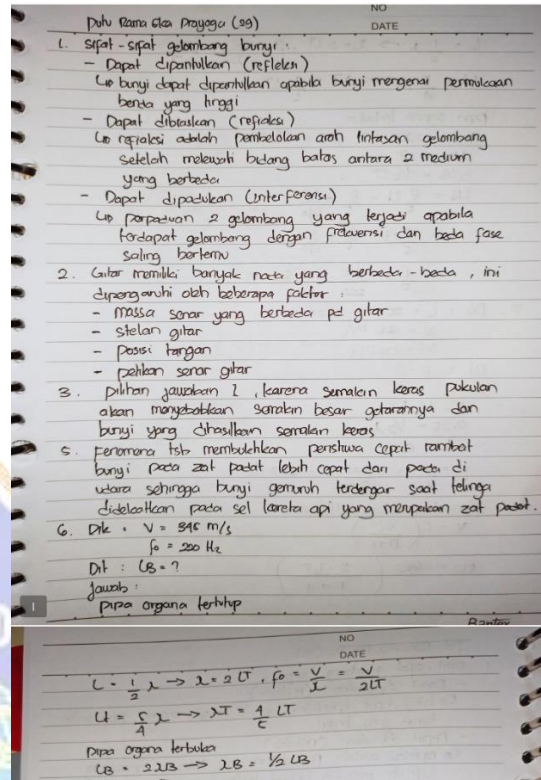 NO
DATE
Putu Rama Eka Prayoga (29)
1. Sifat-sifat gelombang bunyi :
- Dapat dipantulkan (refleksi)
↳ bunyi dapat dipantulkan apabila bunyi mengenai permukaan
benda yang tinggi
- Dapat dibiaskan (refraksi)
↳ refraksi adalah pembelokan arah lintasan gelombang
setelah melewati bidang batas antara 2 medium
yang berbeda
- Dapat dipadukan (interferensi)
↳ perpaduan 2 gelombang yang terjadi apabila
terdapat gelombang dengan frekuensi dan beda fase
saling bertemu
2. Gitar memiliki banyak nada yang berbeda-beda, ini
dipengaruhi oleh beberapa faktor :
- massa senar yang berbeda pd gitar
- stelan gitar
- posisi tangan
- petikan senar gitar
3. pilihan jawaban 2, karena semakin keras pukulan
akan menyebabkan semakin besar getarannya dan
bunyi yang dihasilkan semakin keras
5. Fenomena tsb membuktikan peristiwa cepat rambat
bunyi pada zat padat lebih cepat dari pada di
udara sehingga bunyi gemuruh terdengar saat telinga
didekatkan pada rel kereta api yang merupakan zat padat.
6. Dik : V = 345 m/s
fo = 200 Hz
Dit : LB = ?
Jawab :
pipa organa tertutup
1
NO
DATE
L = 1/2 λ → λ = 2LT, fo = V/λ = V/2LT
LT = 5/4 λ → λT = 4/5 LT
Pipa organa terbuka
LB = 2λB → λB = 1/2 LB